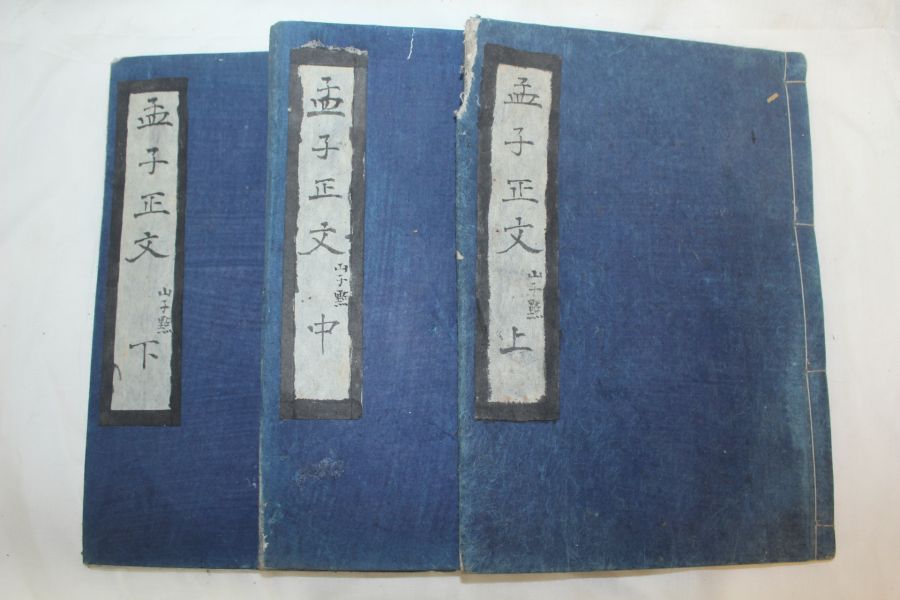 孟子正文
山子點
上
孟子正文
山子點
中
孟子正文
山子點
下